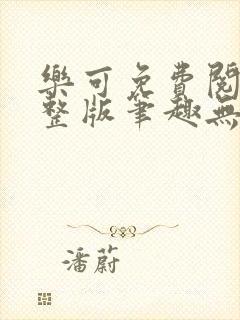 樂可免費閱
整版筆趣無
潘蔚